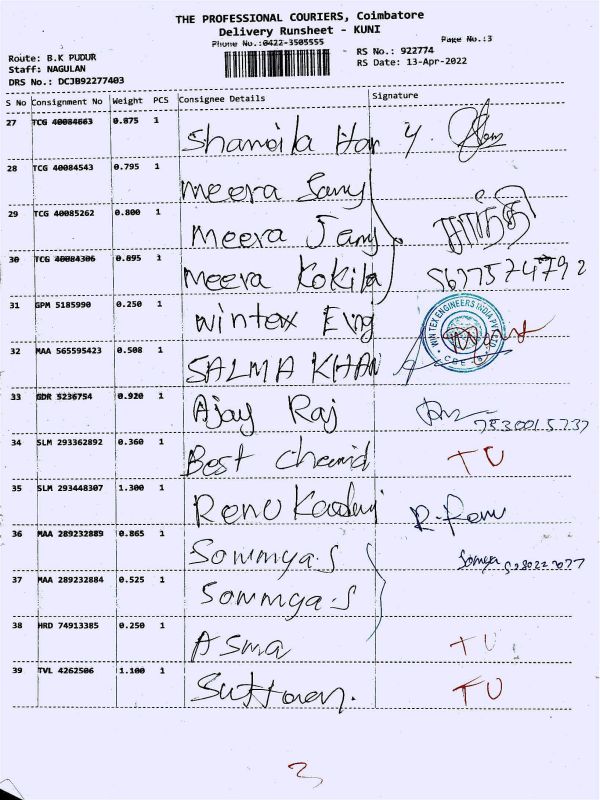 THE PROFESSIONAL COURIERS, Coimbatore
Delivery Runsheet - KUNI
Phone No.:0422-3505555
Page No.:3
Route: B.K PUDUR
Staff: NAGULAN
DRS No.: DCJB92277403
RS No.: 922774
RS Date: 13-Apr-2022
S No Consignment No Weight PCS Consignee Details Signature
27 TCG 40084663 0.875 1 Shamila
28 TCG 40084543 0.795 1 Meera Samy
29 TCG 40085262 0.800 1 Meera Samy சாந்தி
30 TCG 40084306 0.895 1 Meera Kokila
31 GPM 5185990 0.250 1 Wintex Eng
WINTEX ENGINEERS INDIA PVT LTD
32 MAA 565595423 0.508 1 SALMA KHAN
33 GDR 5236754 0.920 1 Ajay Raj
34 SLM 293362892 0.360 1 Best TU
35 SLM 293448307 1.300 1 Renu R. Renu
36 MAA 289232889 0.865 1 Sowmya.S Somya
37 MAA 289232884 0.525 1 Sowmya.S
38 HRD 74913385 0.250 1 Asma TU
39 TVL 4262506 1.100 1 TU
3